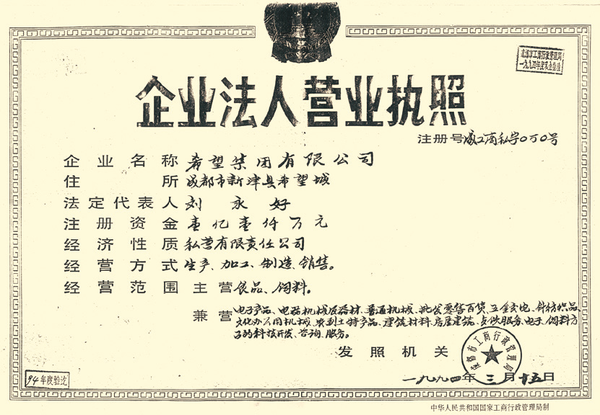 企业法人营业执照
注册号 成工商私字0万0号
企业名称 希望集团有限公司
住所 成都市新津县希望城
法定代表人 刘永好
注册资金 壹亿壹仟万元
经济性质 私营有限责任公司
经营方式 生产、加工、制造、销售。
经营范围 主营 食品、饲料。
兼营 电子产品、电器机械及器材、普通机械、批发零售百货、五金交电、针纺织品、
文化办公用机械、农副土特产品、建筑材料、房屋建筑、
子的科技开发、咨询、服务。
发照机关
成都市工商行政管理局
一九九四年三月十五日
94年度验讫
中华人民共和国国家工商行政管理局制